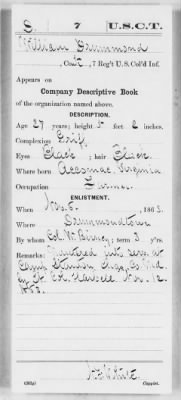 S 7 U.S.C.T.
William Drummond
, Co. , 7 Reg't U. S. Col'd Inf.
Appears on
Company Descriptive Book
of the organization named above.
DESCRIPTION.
Age 27 years; height 5 feet 2 inches.
Complexion
Eyes Black ; hair Black
Where born Accomac, Virginia
Occupation Farmer
ENLISTMENT.
When Nov. 5, , 1863.
Where Drummondtown
By whom Col. W. Birney ; term 3 y'rs.
Remarks: Mustered into serv. at
Camp Stanton, Co. Md.
by Lt. Col. Nov. 12,
1863.
(383g) Copyist.